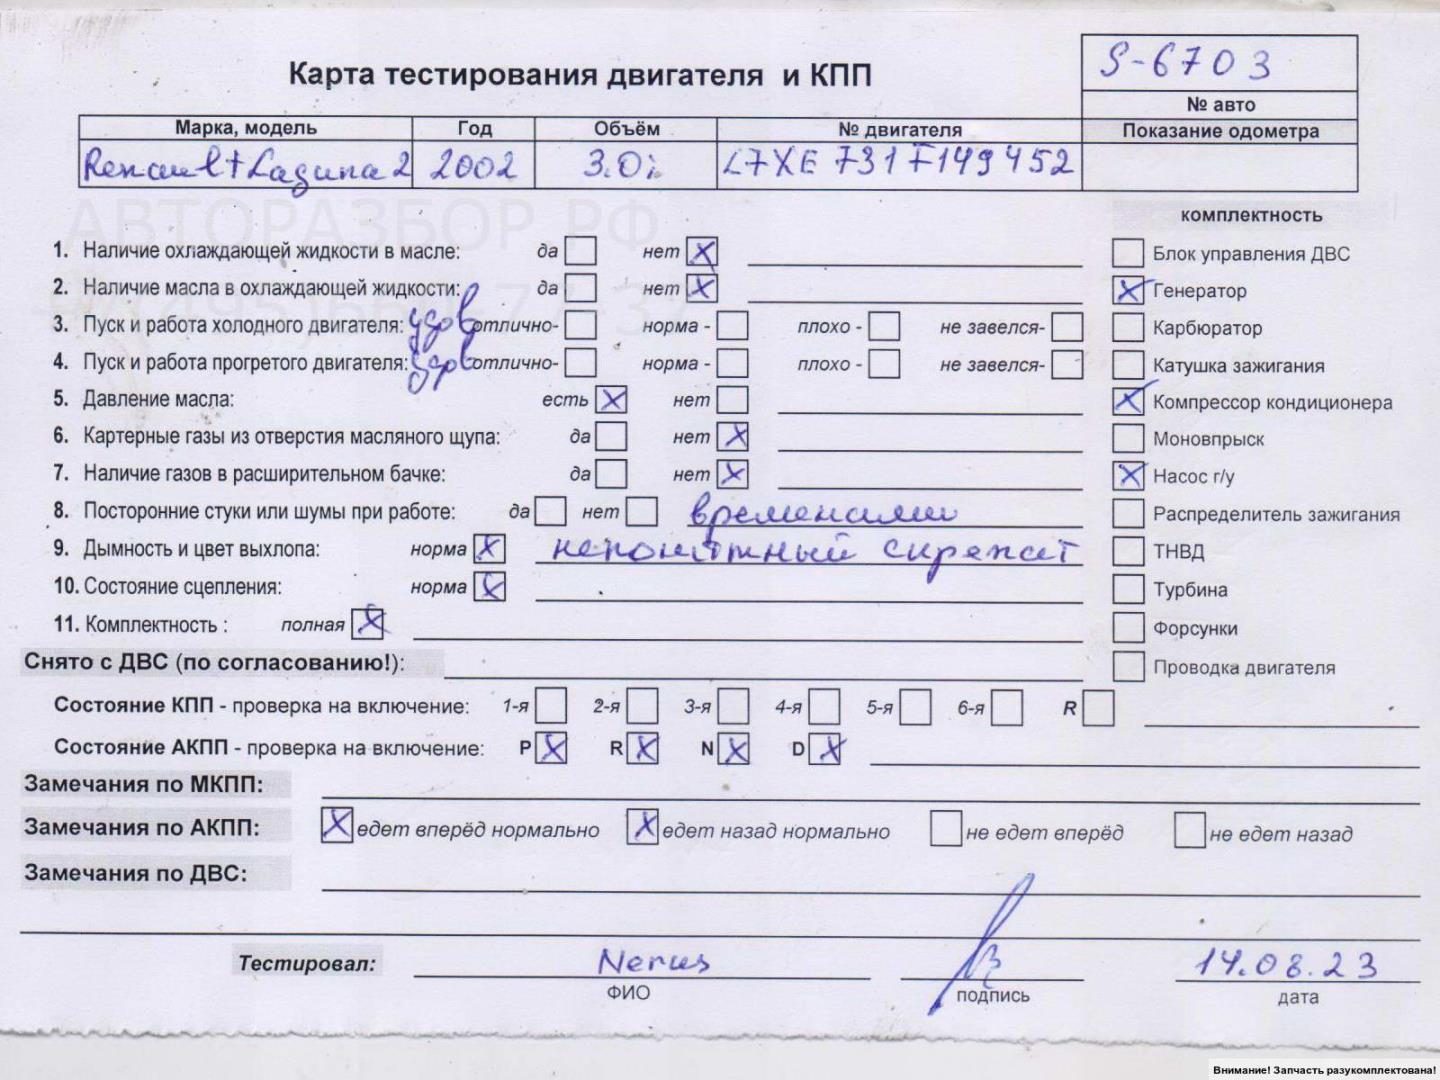 Карта тестирования двигателя и КПП
S-6703
№ авто
Марка, модель Год Объём № двигателя Показание одометра
Renault Laguna 2 2002 3.0i L7XE 731 F149452
АВТОРАЗБОР.РФ
комплектность
1. Наличие охлаждающей жидкости в масле: да нет X Блок управления ДВС
2. Наличие масла в охлаждающей жидкости: да нет X X Генератор
3. Пуск и работа холодного двигателя: удов отлично- норма - плохо - не завелся- Карбюратор
4. Пуск и работа прогретого двигателя: удов отлично- норма - плохо - не завелся- Катушка зажигания
5. Давление масла: есть X нет X Компрессор кондиционера
6. Картерные газы из отверстия масляного щупа: да нет X Моновпрыск
7. Наличие газов в расширительном бачке: да нет X X Насос г/у
8. Посторонние стуки или шумы при работе: да нет временами Распределитель зажигания
9. Дымность и цвет выхлопа: норма X непонятный скрежет ТНВД
10. Состояние сцепления: норма X Турбина
11. Комплектность : полная X Форсунки
Снято с ДВС (по согласованию!): Проводка двигателя
Состояние КПП - проверка на включение: 1-я 2-я 3-я 4-я 5-я 6-я R
Состояние АКПП - проверка на включение: P X R X N X D X
Замечания по МКПП:
Замечания по АКПП: X едет вперёд нормально X едет назад нормально не едет вперёд не едет назад
Замечания по ДВС:
Тестировал: Nerus 14.08.23
ФИО подпись дата
Внимание! Запчасть разукомплектована!